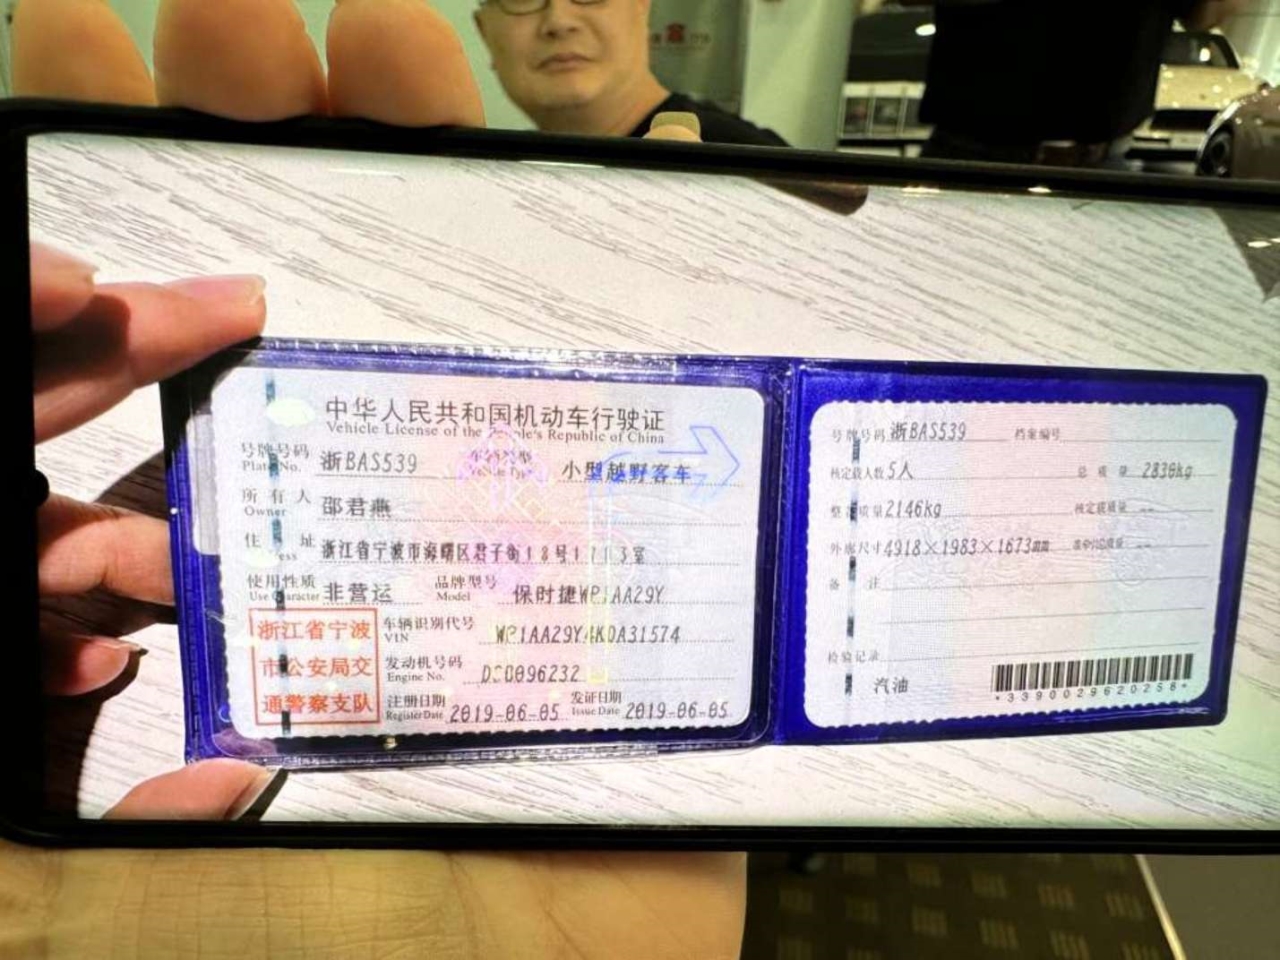 中华人民共和国机动车行驶证
Vehicle License of the People's Republic of China
号牌号码 浙BAS539 车辆类型 小型越野客车
Plate No. Vehicle Type
所有人 邵君燕
Owner
住址 浙江省宁波市海曙区君子街18号1713室
使用性质 非营运 品牌型号 保时捷WP1AA29Y
Use Character Model
浙江省宁波
市公安局交
通警察支队
车辆识别代号 WP1AA29Y4KDA31574
VIN
发动机号码
Engine No.
注册日期 2019-06-05 发证日期 2019-06-05
Register Date Issue Date
号牌号码 浙BAS539 档案编号
核定载人数 5人 总质量 2830kg
整备质量 2146kg 核定载质量 --
外廓尺寸 4918×1983×1673mm --
备注
检验记录
汽油
*3390029620258*